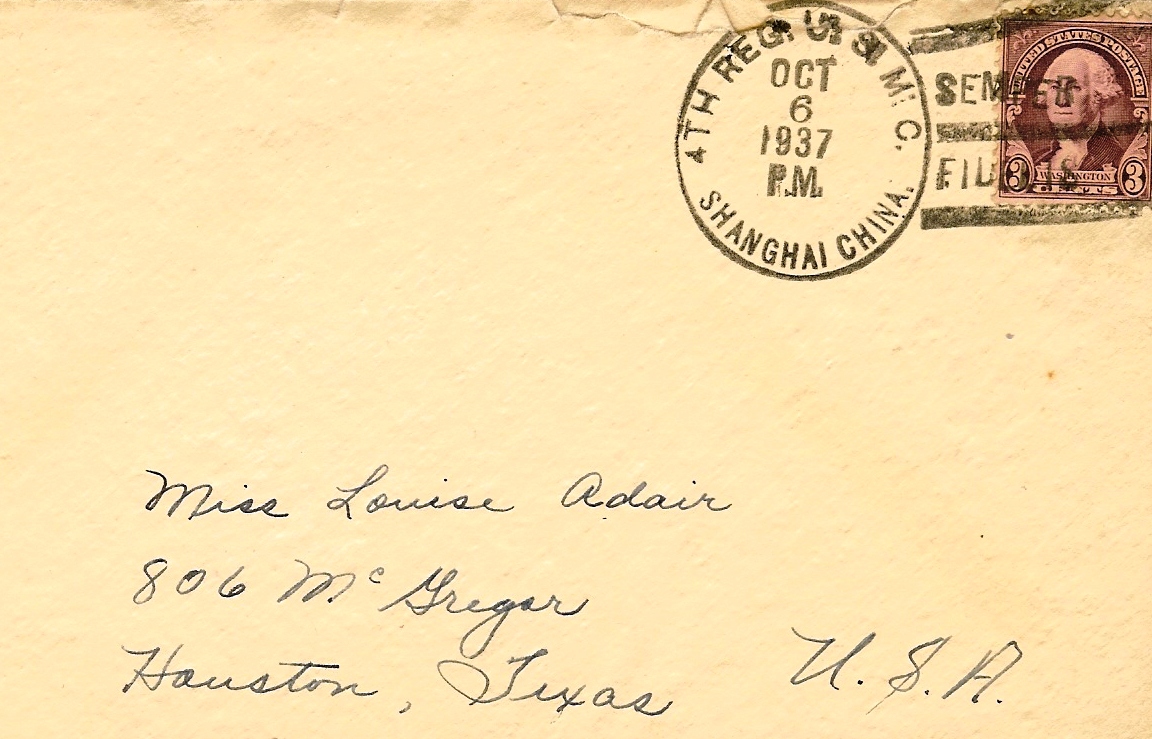 4TH REG. U. S. M. C.
OCT
6
1937
P.M.
SHANGHAI CHINA.
SEMPER
FIDELIS
UNITED STATES POSTAGE
3 WASHINGTON 3
CENTS
Miss Louise Adair
806 McGregor
Houston, Texas
U. S. A.